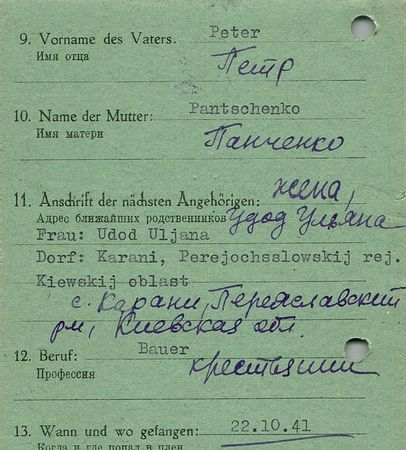 9. Vorname des Vaters. Peter
Имя отца Петр
10. Name der Mutter: Pantschenko
Имя матери Панченко
11. Anschrift der nächsten Angehörigen: жена,
Адрес ближайших родственников Удод Ульяна
Frau: Udod Uljana
Dorf: Karani, Perejochsslowskij rej.
Kiewskij oblast
с. Карани, Переяславский
рн, Киевская обл.
12. Beruf: Bauer
Профессия крестьянин
13. Wann und wo gefangen: 22.10.41
Когда и где попал в плен